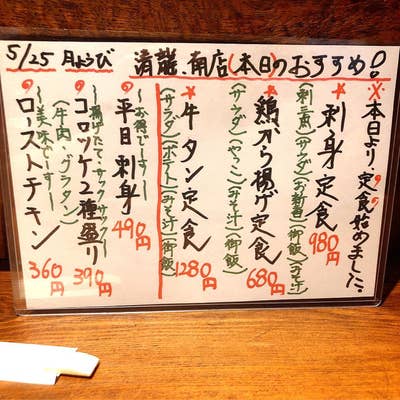 5/25 月ようび 清龍、南店(本日)のおすすめ!
※本日より、定食始めました。
★刺身定食 980円
(刺三点)(サラダ)(お新香)(御飯)(みそ汁)
★鶏から揚げ定食 680円
(サラダ)(やっこ)(みそ汁)(御飯)
★牛タン定食 1280円
(サラダ)(ポテト)(みそ汁)(御飯)
平目刺身 490円
〜お得でーす〜
コロッケ2種盛り 390円
〜揚げたてサックサク〜
(牛肉・グラタン)
ローストチキン 360円
〜美味でーす〜